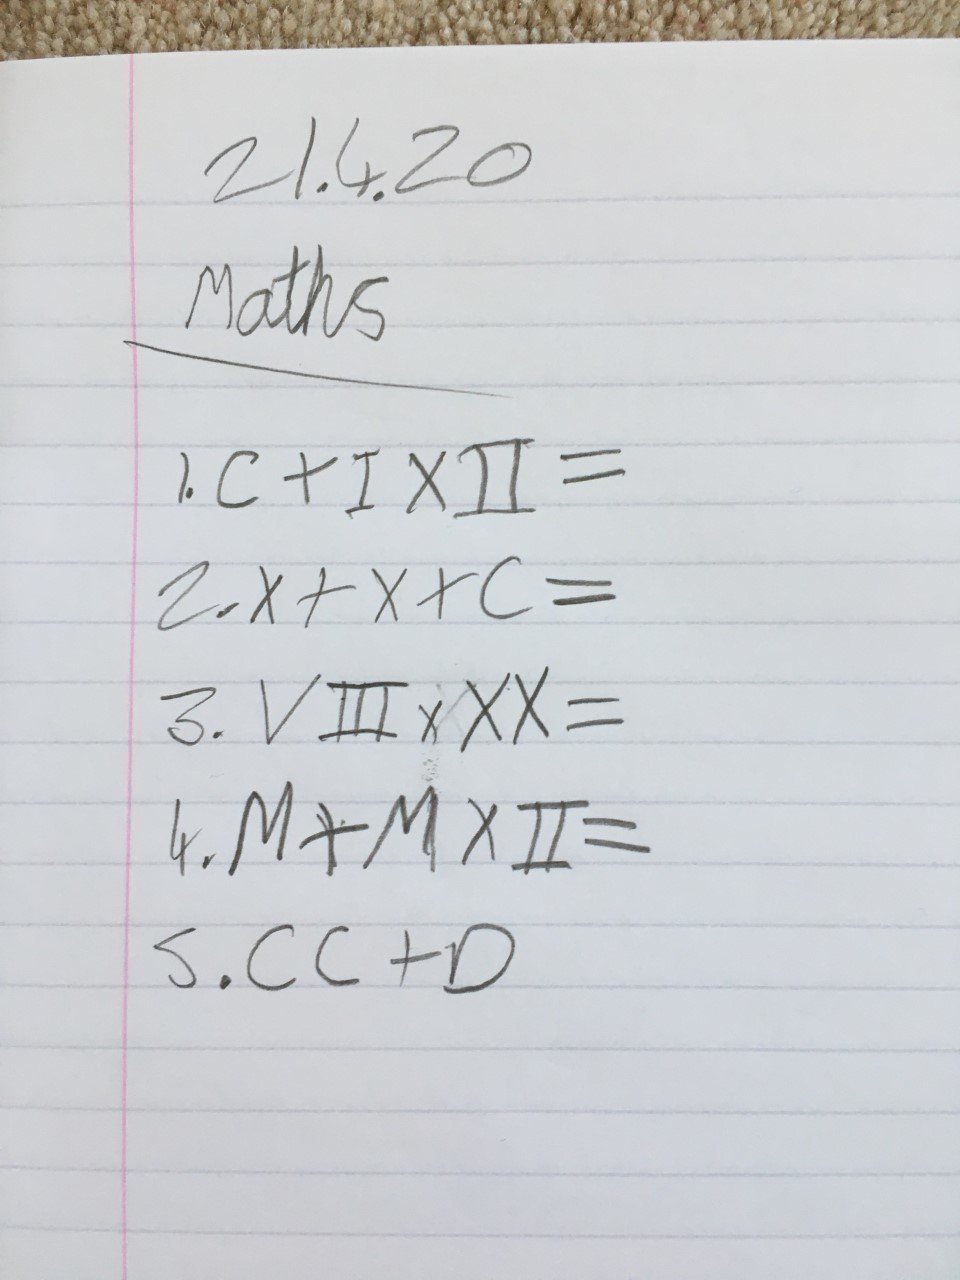 21.4.20
Maths
1. C + I X II =
2. X + X + C =
3. VIII x XX =
4. M + M X II =
5. CC + D